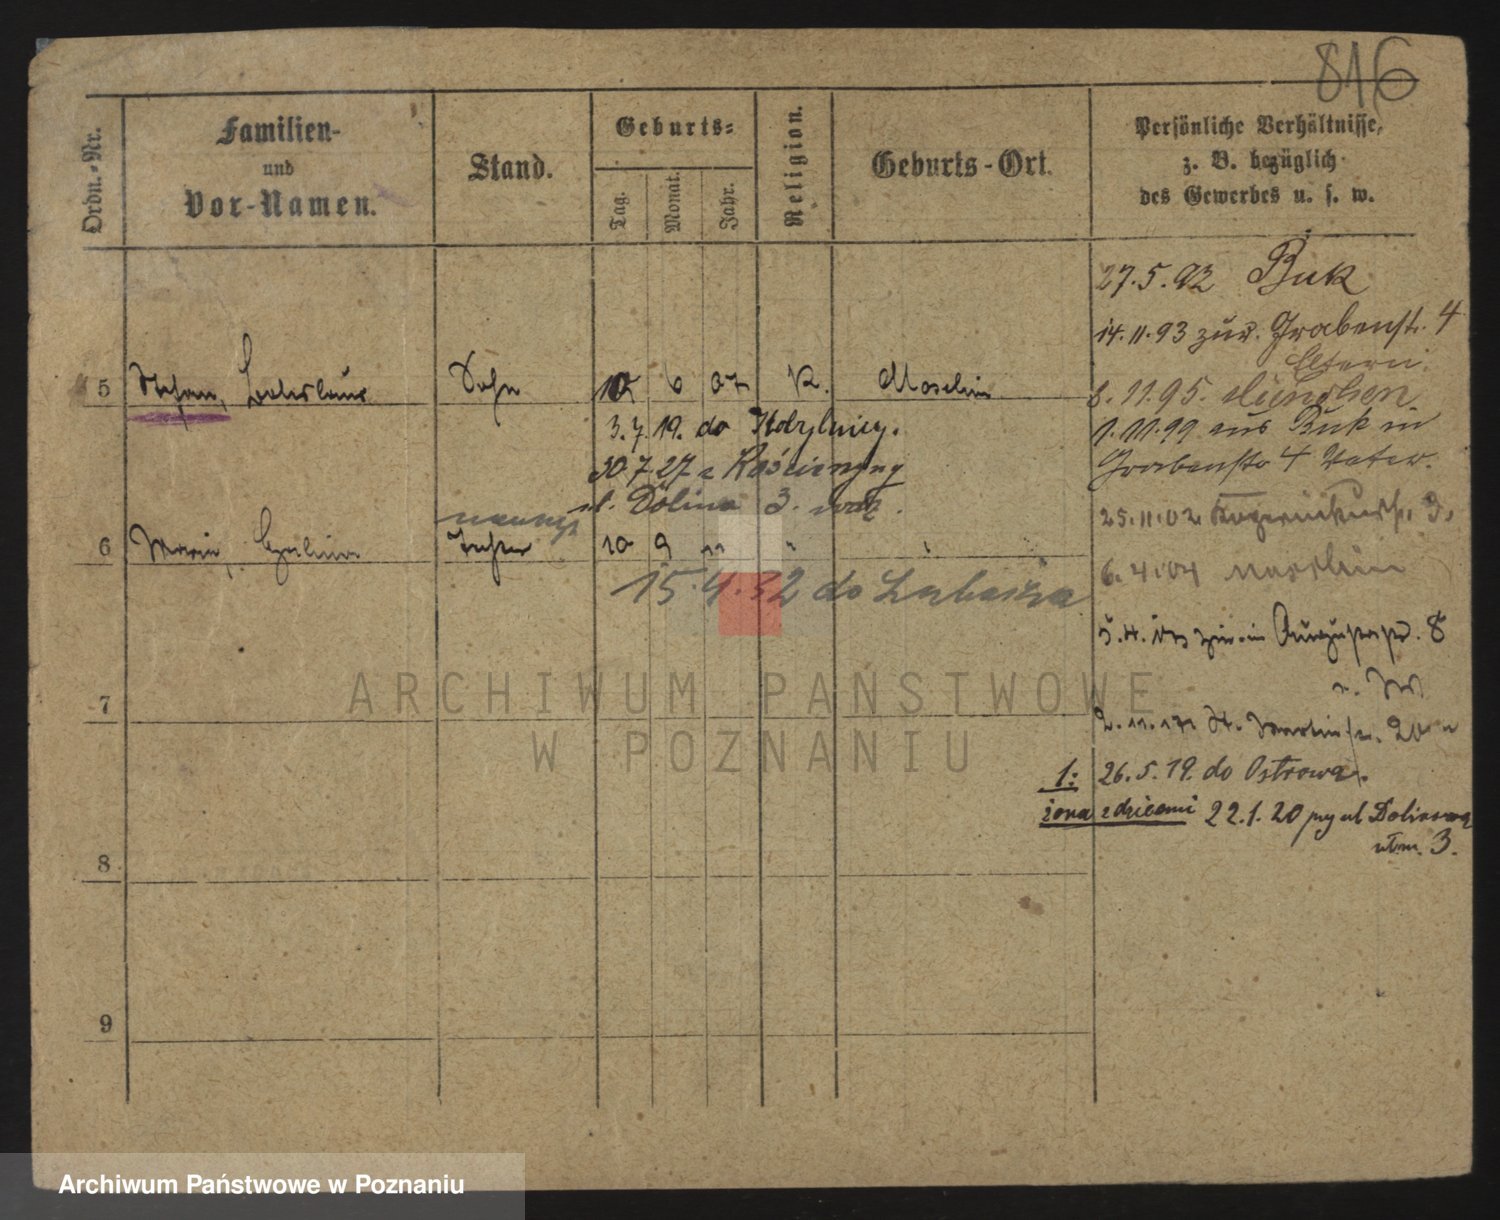 816
Ordn.-Nr.
Familien-
und
Vor-Namen.
Stand.
Geburts-
Tag.
Monat.
Jahr.
Religion.
Geburts-Ort.
Persönliche Verhältnisse,
z. B. bezüglich
des Gewerbes u. s. w.
27.5.92 Buk
14.11.93 zur. Grabenstr. 4
Eltern.
5 Stefan, Ladislaus Sohn 10 6 07 K. Moschin
8.11.95. München
3.7.19. do
1.11.99 aus Buk in
Grabenstr 4 Vater.
30.7.27 z
ul. Dolina 3.
25.11.02 3.
6 Maria, Tochter 10 9 11 " "
6.4.04 Moschin
15.4.32 do Lubasza
5.4. 8
7
2.11. St. Martinstr. 20
1: 26.5.19. do Ostrowa.
żona z dziećmi 22.1.20 przy ul Dolina
8
3.
9
ARCHIWUM PAŃSTWOWE
W POZNANIU
Archiwum Państwowe w Poznaniu